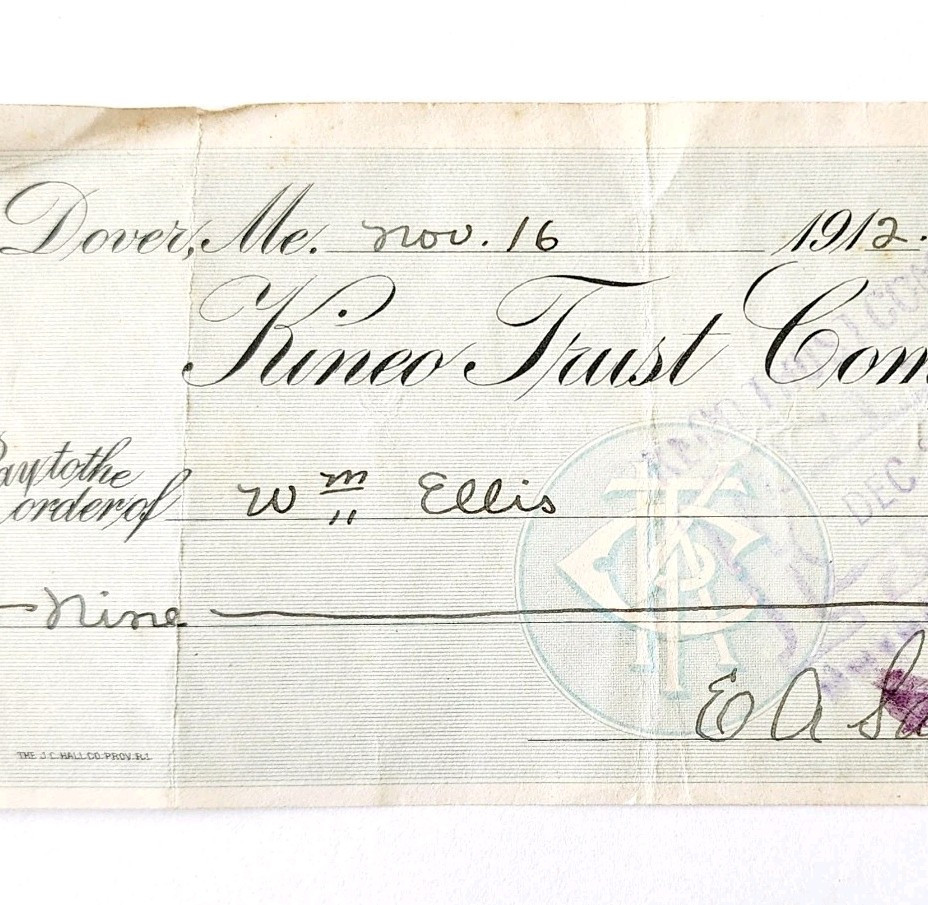 Dover, Me. Nov. 16 1912.
Kineo Trust Com
Pay to the
order of Wm Ellis
Nine
E A
THE J.C. HALL CO. PROV. R.I.
DEC